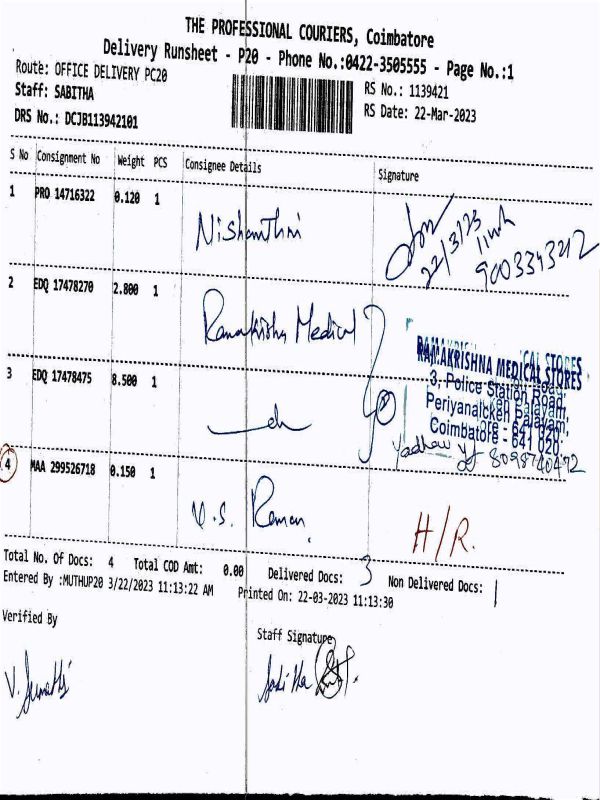 THE PROFESSIONAL COURIERS, Coimbatore
Delivery Runsheet - P20 - Phone No.:0422-3505555 - Page No.:1
Route: OFFICE DELIVERY PC20
RS No.: 1139421
Staff: SABITHA
RS Date: 22-Mar-2023
DRS No.: DCJB113942101
S No Consignment No Weight PCS Consignee Details Signature
1 PRO 14716322 0.120 1 Nishanthni
22/3/23
9003343212
2 EDQ 17478270 2.800 1 Ramakrishna Medical
RAMAKRISHNA MEDICAL STORES
3, Police Station Road,
Periyanaicken Palayam,
Coimbatore - 641 020.
Yadhav 8098740472
3 EDQ 17478475 8.500 1
4 MAA 299526718 0.150 1 V.S. Raman. H/R.
Total No. Of Docs: 4 Total COD Amt: 0.00 Delivered Docs: 3 Non Delivered Docs: 1
Entered By :MUTHUP20 3/22/2023 11:13:22 AM Printed On: 22-03-2023 11:13:30
Verified By
Staff Signature
V. Sumathi
Sabitha